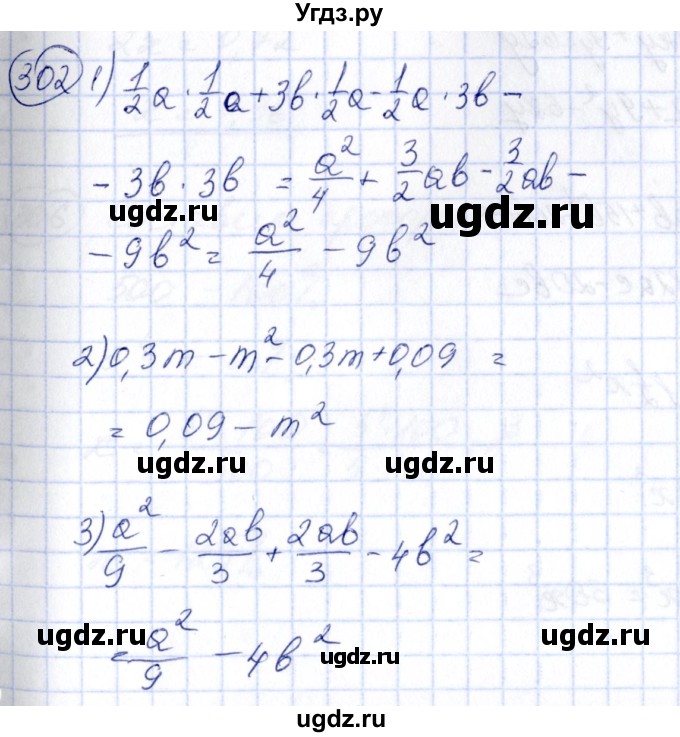 Угдз.ру
302 1) 1/2 a · 1/2 a + 3b · 1/2 a - 1/2 a · 3b -
- 3b · 3b = a²/4 + 3/2 ab - 3/2 ab -
ugdz.ru ugdz.ru
- 9b² = a²/4 - 9b²
2) 0,3m - m² - 0,3m + 0,09 =
= 0,09 - m²
ugdz.ru ugdz.ru
3) a²/9 - 2ab/3 + 2ab/3 - 4b² =
ugdz.ru ugdz.ru
= a²/9 - 4b²
ugdz.ru
ugdz.ru